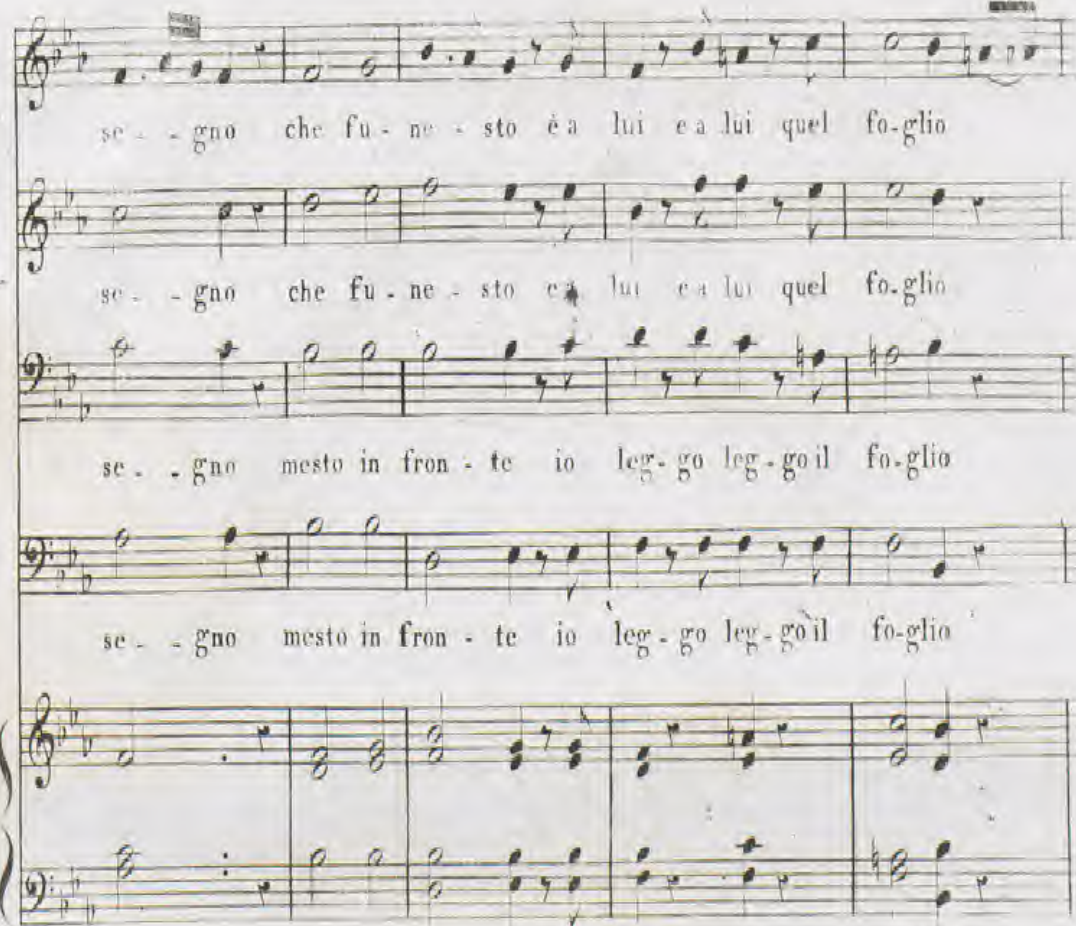 se - - gno che fu - ne - sto è a lui e a lui quel fo-glio
se - - gno che fu - ne - sto e a lui e a lui quel fo-glio
se - - gno mesto in fron - te io leg - go leg - go il fo-glio
se - - gno mesto in fron - te io leg - go leg - go il fo-glio